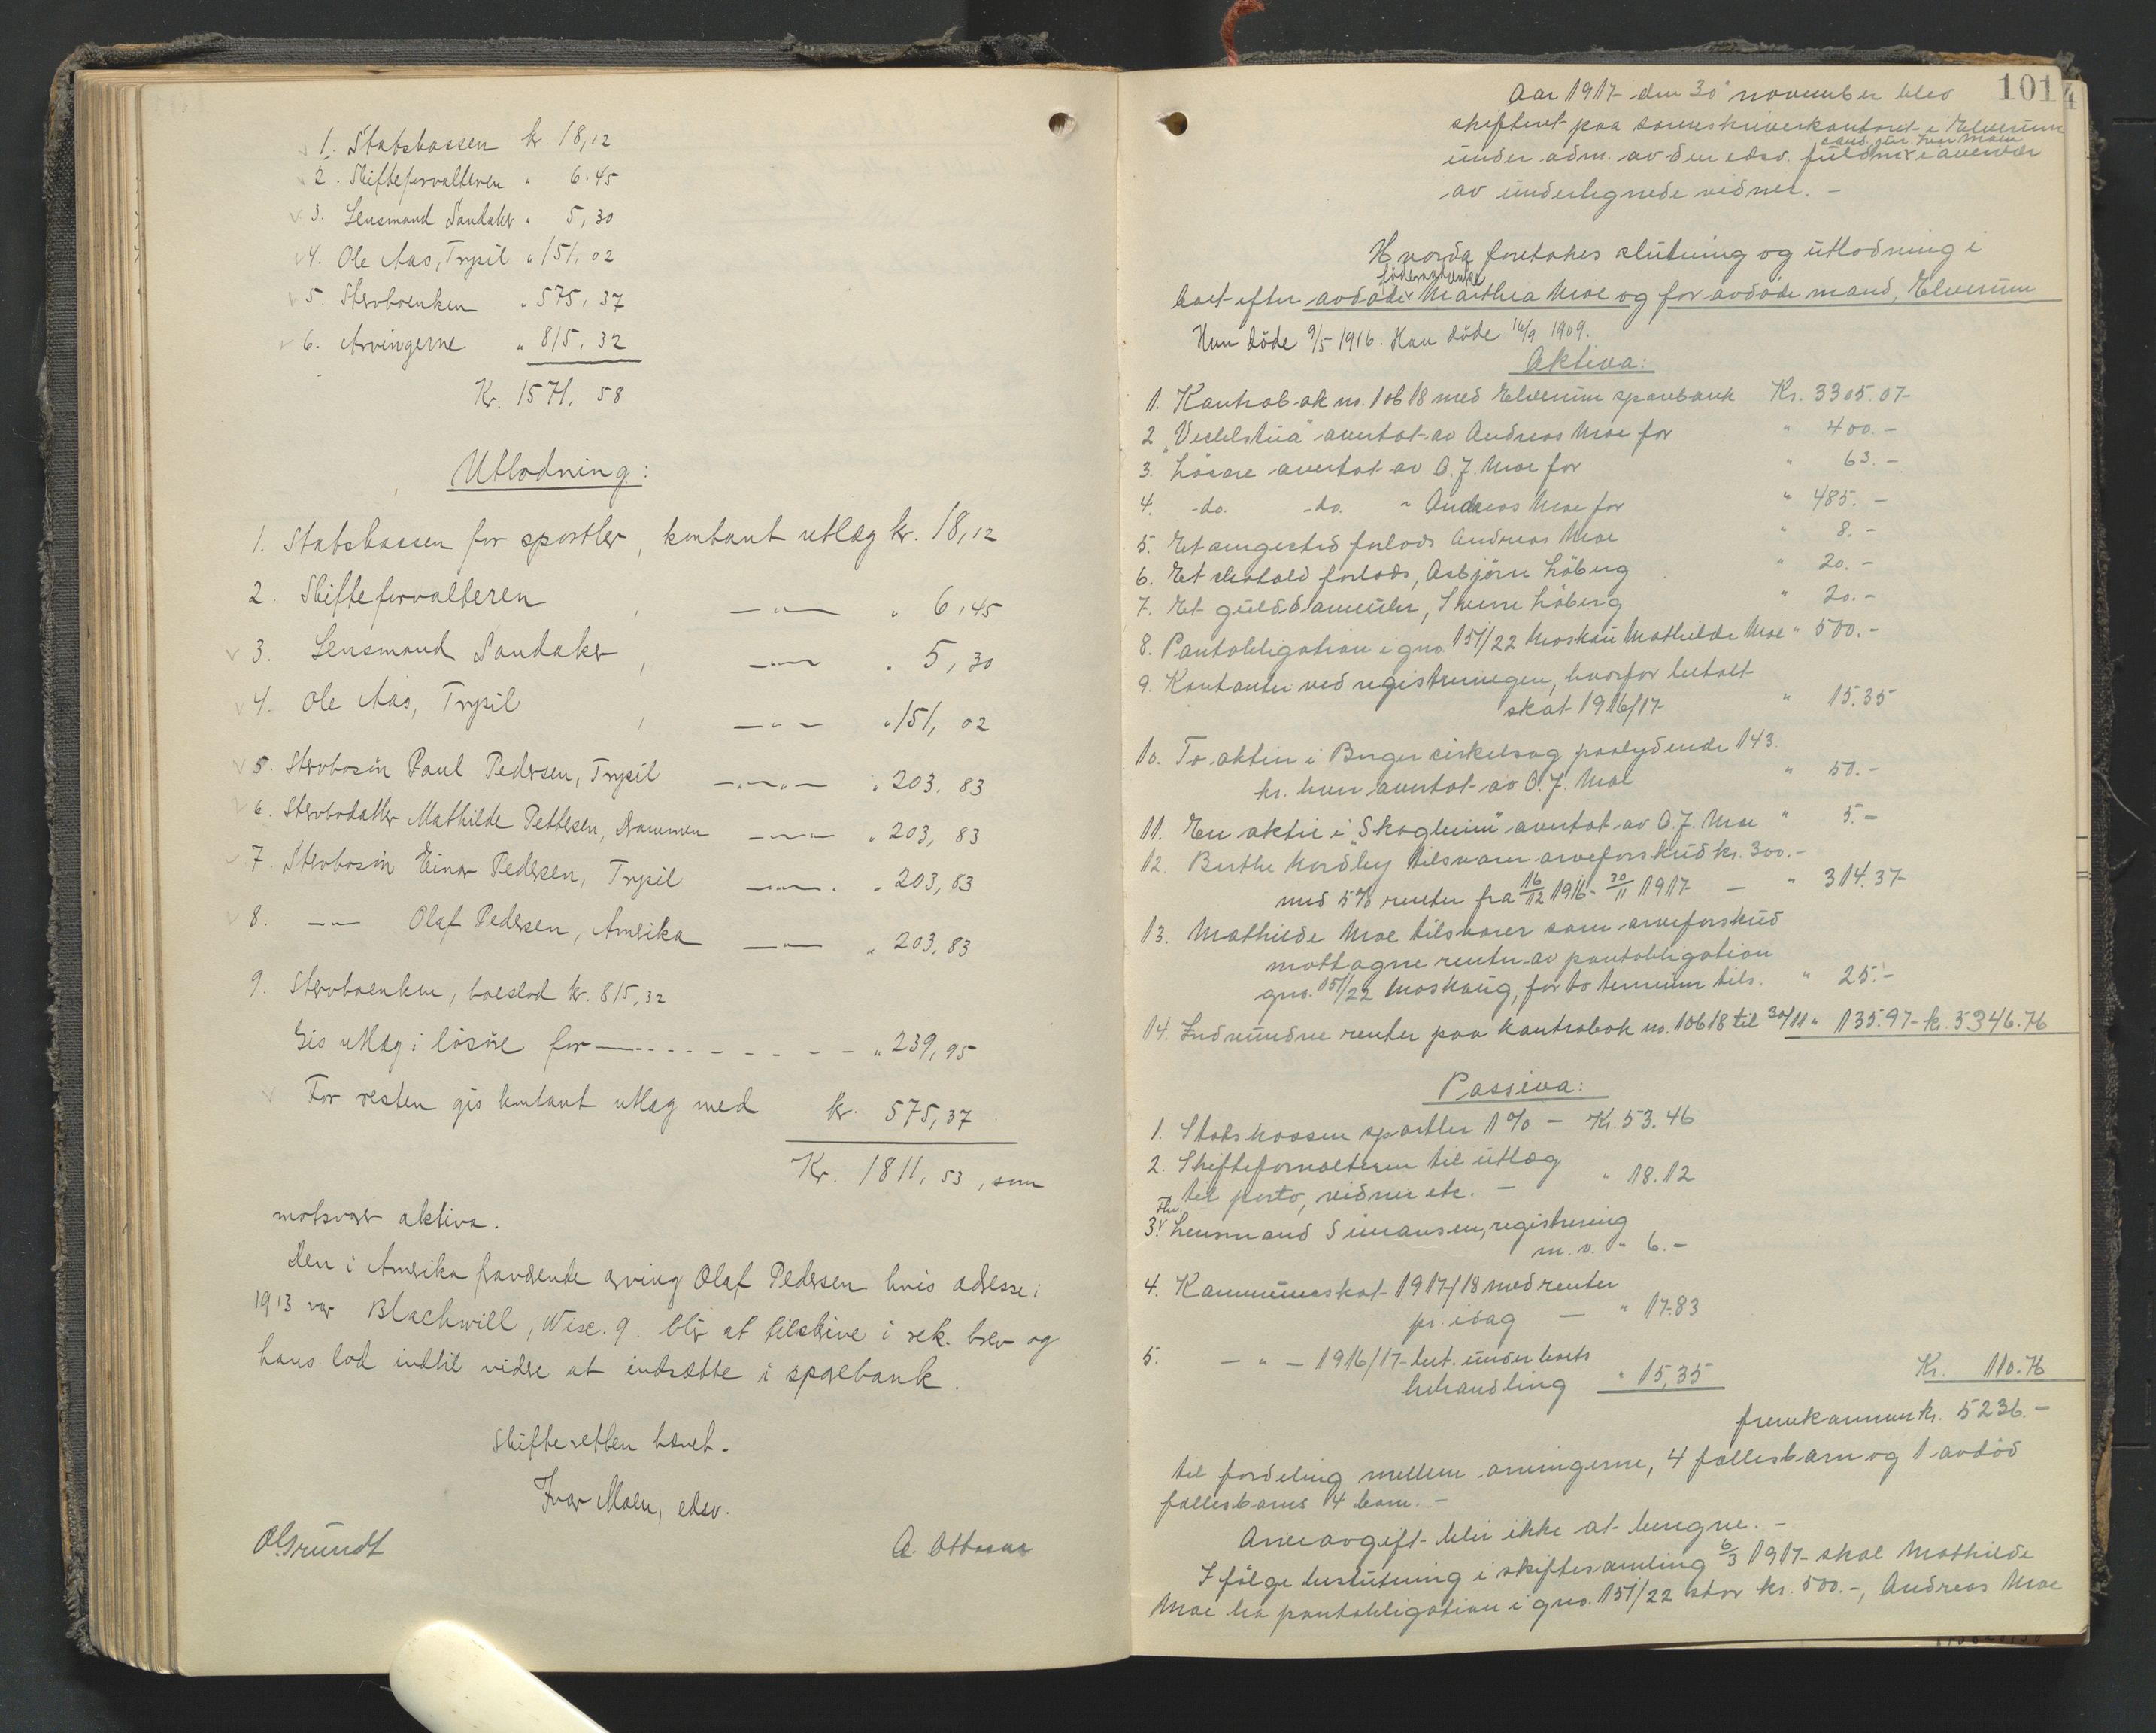 1. Statskassen kr. 18,12
2. Skifteforvalteren " 6.45
3. Lensmand Sandaker " 5,30
4. Ole Aas, Trysil " 151,02
5. Stervboenken " 575,37
6. Arvingerne " 815,32
Kr. 1571,58
Utlodning:
1. Statskassen for sportler, kontant utlæg kr. 18,12
2. Skifteforvalteren , —"— " 6,45
3. Lensmand Sandaker , —"— " 5,30
4. Ole Aas, Trysil , —"— " 151,02
5. Stervbosön Paul Pedersen, Trysil —"—"— " 203.83
6. Stervbodatter Mathilde Pettersen, Drammen —"— " 203,83
7. Stervbosön Einar Pedersen, Trysil —"— " 203,83
8. —"— Olaf Pedersen, Amerika —"— " 203,83
9. Stervboenken, boeslod kr. 815,32
Gis utlæg i lösöre for — " 239,95
For resten gis kontant utlæg med kr. 575,37
Kr. 1811,53, som
motsvarer aktiva.
Den i Amerika fraværende arving Olaf Pedersen hvis adresse i
1913 var Blackwill, Wisc. 9. blir at tilskrive i rek. brev og
hans lod indtil videre at indsætte i sparebank.
Skifteretten hævet.
Ivar Moen, edsv.
O. Grundt A. Ottosen
101
Aar 1917 den 30' november blev
skifteret paa sorenskriverkontoret i Elverum
cand. jur. Ivar Moen
under adm. av den edsv. fuldm. v i overvær
av undertegnede vidner. –
Hvorda foretokes slutning og utlodning i
föderaadsenke
boet efter avdöde v Marthea Moe og for avdöde mand, Elverum
Hun döde 9/5 1916. Han döde 16/9 1909.
Aktiva:
1. Kontrabok no. 10618 med Elverum sparebank Kr. 3305.07
2. "Veslestua" overtat av Andreas Moe for " 400.–
3. Lösöre overtat av O. J. Moe for " 63.–
4. -do. -do. " Andreas Moe for " 485.–
5. Et sengested forlods Andreas Moe " 8.–
6. Et skatold forlods, Asbjörn Löberg " 20.–
7. Et guld dameuhr, Sverre Löberg " 20.–
8. Pantobligation i gno. 151/22 Moskau Mathilde Moe " 500.–
9. Kontanter ved registreringen, hvorfor betalt
skat 1916/17 " 15.35
10. To aktier i Berger cirkelsag paalydende 143
kr. hver overtat av O. J. Moe " 50.–
11. En aktie i "Skogheim" overtat av O. J. Moe " 5.–
12. Berthe Nordby tilsvarer arveforskud kr. 300.–
med 5% renter fra 16/12 1916 - 30/11 1917 — " 314.37
13. Mathilde Moe tilsvarer som arveforskud
mottagne renter av pantobligation
gno. 151/22 Moskaug, for to terminer tils. " 25.–
14. Indvundne renter paa kontrabok no. 10618 til 30/11 " 135.97 kr. 5346.76
Passiva:
1. Statskassen sportler 1% – Kr. 53.46
2. Skifteforvalteren til utlæg
til porto, vidner etc. – " 18.12
Fhv
3. v Lensmand Simensen, registrering
m. v. " 6.–
4. Kommuneskat 1917/18 med renter
pr. idag — " 17.83
5. — " — 1916/17 bet. under boets
behandling " 15,35 Kr. 110.76
fremkommer kr. 5236.–
til fordeling mellem arvingerne, 4 fællesbarn og 1 avdöd
fællesbarns 4 barn. –
Arveavgift blir ikke at beregne. –
Ifölge beslutning i skiftesamling 6/3 1917 skal Mathilde
Moe ha pantobligation i gno. 151/22 stor kr. 500.–, Andreas Moe